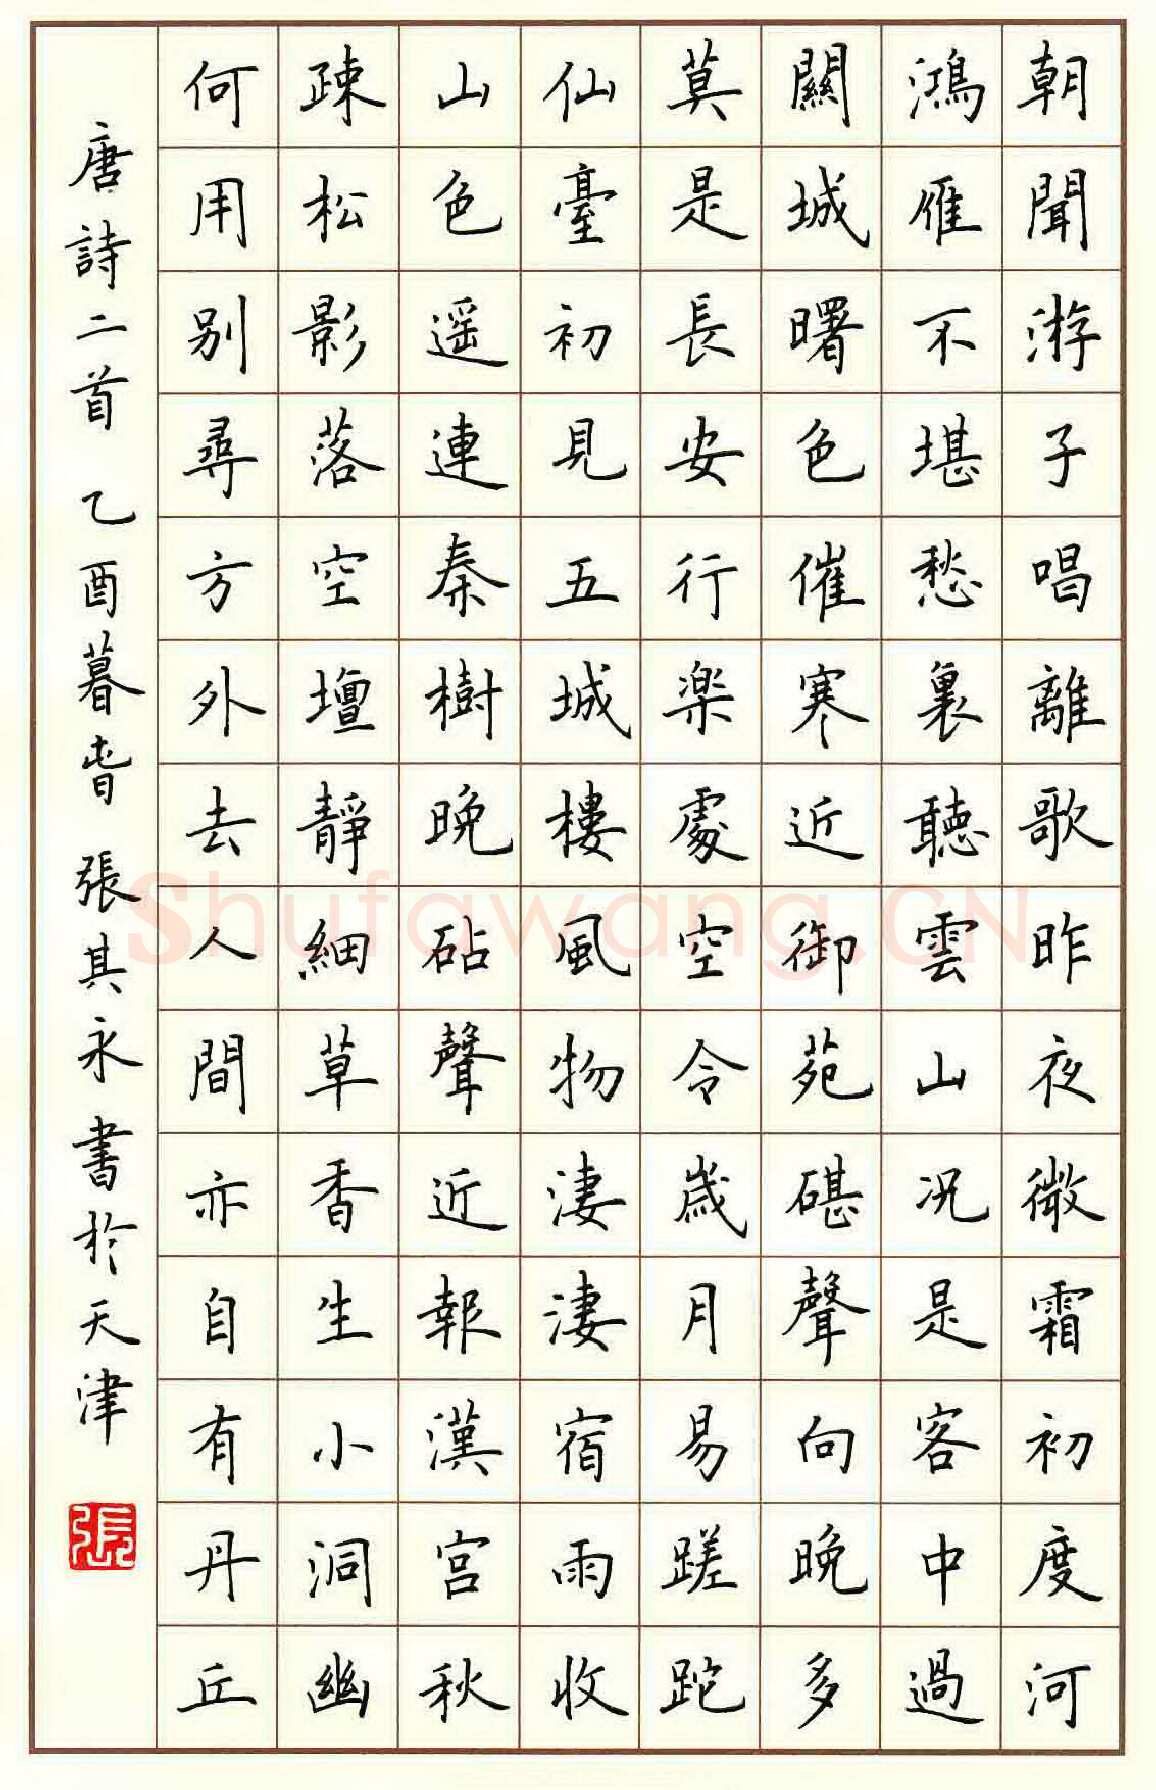 朝聞游子唱離歌昨夜微霜初度河
鴻雁不堪愁裏聽雲山况是客中過
關城曙色催寒近御苑碪聲向晚多
莫是長安行楽處空令歲月易蹉跎
仙臺初見五城樓風物淒淒宿雨收
山色遥連秦樹晚砧聲近報漢宮秋
疎松影落空壇靜細草香生小洞幽
何用別尋方外去人間亦自有丹丘
唐詩二首 乙酉暮春 張其永書於天津
張
Shufawang.CN